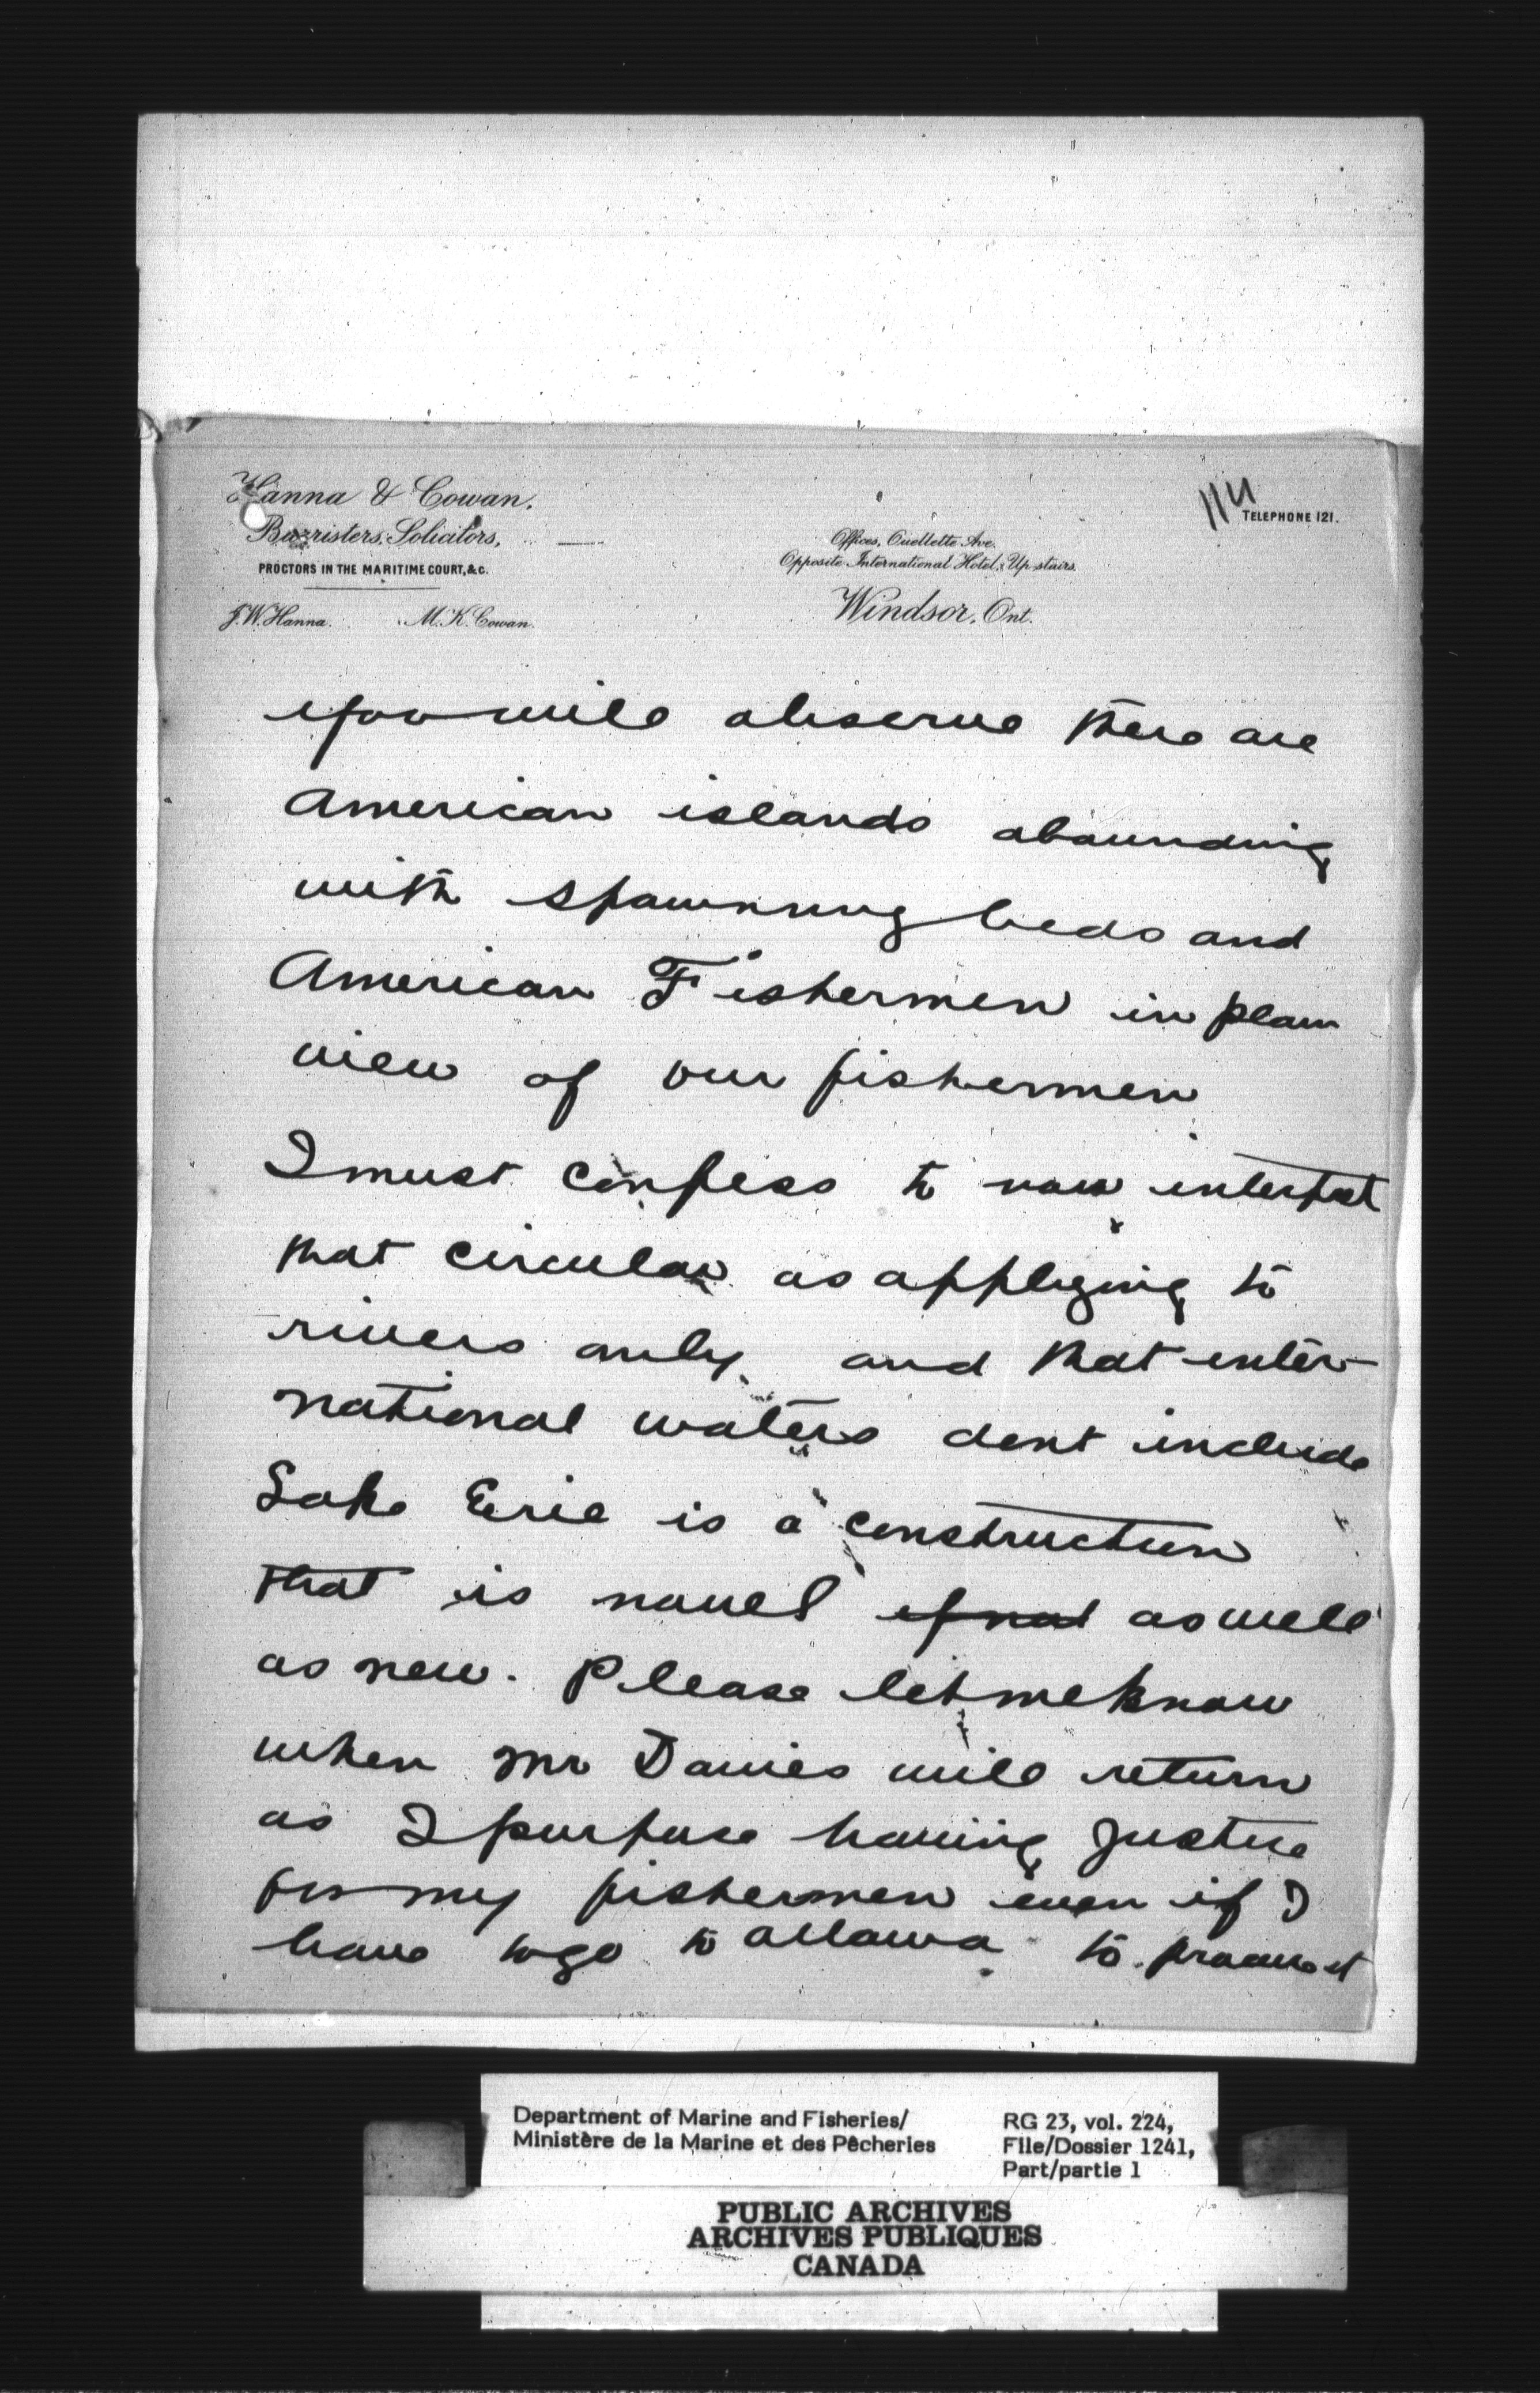 Hanna & Cowan,
Barristers, Solicitors,
PROCTORS IN THE MARITIME COURT, &C.
J. W. Hanna. M. K. Cowan.
114
TELEPHONE 121.
Offices, Ouellette Ave.
Opposite International Hotel, Up-stairs.
Windsor, Ont.
you will observe there are
American islands abounding
with spawning beds and
American Fishermen in plain
view of our fishermen
I must confess to now interpret
that circular as applying to
rivers only and that inter-
national waters dont include
Lake Erie is a construction
that is novel if not as well
as new. Please let me know
when Mr Davies will return
as I purpose having justice
for my fishermen even if I
have to go to Ottawa to procure it
Department of Marine and Fisheries/
Ministère de la Marine et des Pêcheries
RG 23, vol. 224,
File/Dossier 1241,
Part/partie 1
PUBLIC ARCHIVES
ARCHIVES PUBLIQUES
CANADA